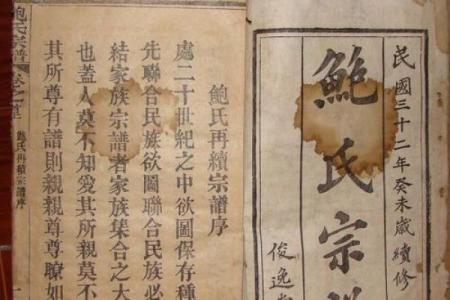 民國三十二年癸未歲續修
鮑氏宗譜
俊逸
鮑氏再續宗譜序
處二十世紀之中欲圖保存種
先聯合民族欲圖聯合民族必
結家族宗譜者家族集合之大
也蓋人莫不知愛其所親莫不
其所尊有譜則親親尊尊瞭如
鮑氏宗譜 卷之
鮑氏再續宗譜序
一